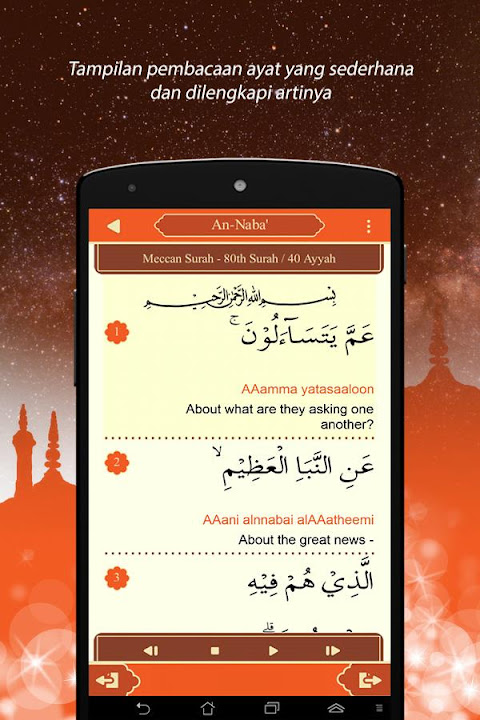 Tampilan pembacaan ayat yang sederhana
dan dilengkapi artinya
An-Naba'
Meccan Surah - 80th Surah / 40 Ayyah
بِسْمِ اللهِ الرَّحْمٰنِ الرَّحِيْمِ
1
عَمَّ يَتَسَآءَلُوْنَ ۚ
AAamma yatasaaloon
About what are they asking one
another?
2
عَنِ النَّبَاِ الْعَظِيْمِ ۙ
AAani alnnabai alAAatheemi
About the great news -
3
الَّذِيْ هُمْ فِيْهِ